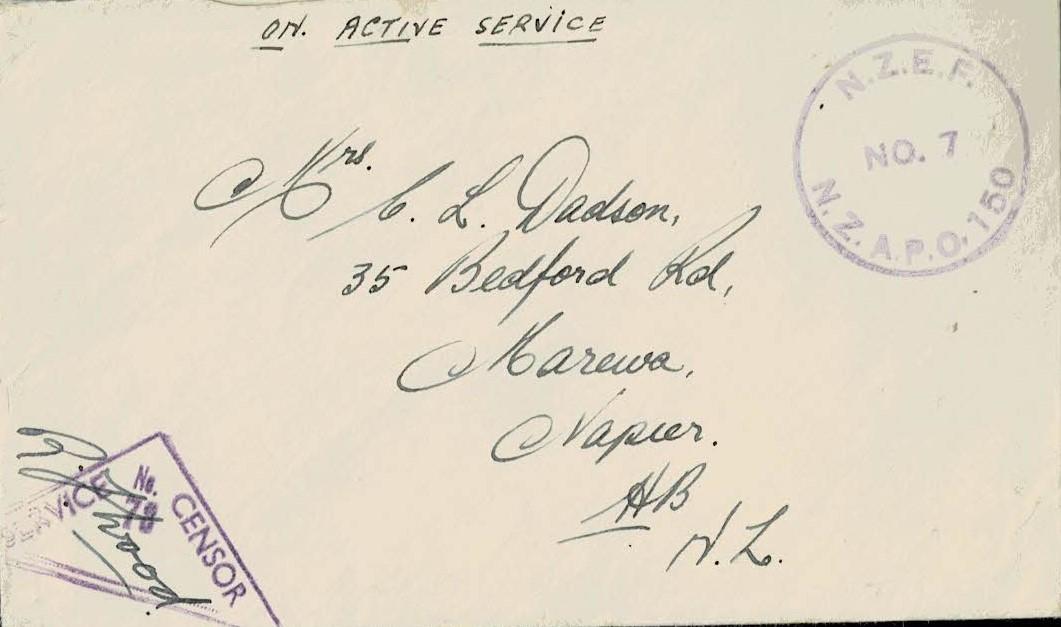 ON. ACTIVE SERVICE
N.Z.E.F.
NO. 7
N.Z.A.P.O. 150
Mrs. C. L. Dadson,
35 Bedford Rd,
Marewa,
Napier.
HB
N.Z.
No.
CENSOR